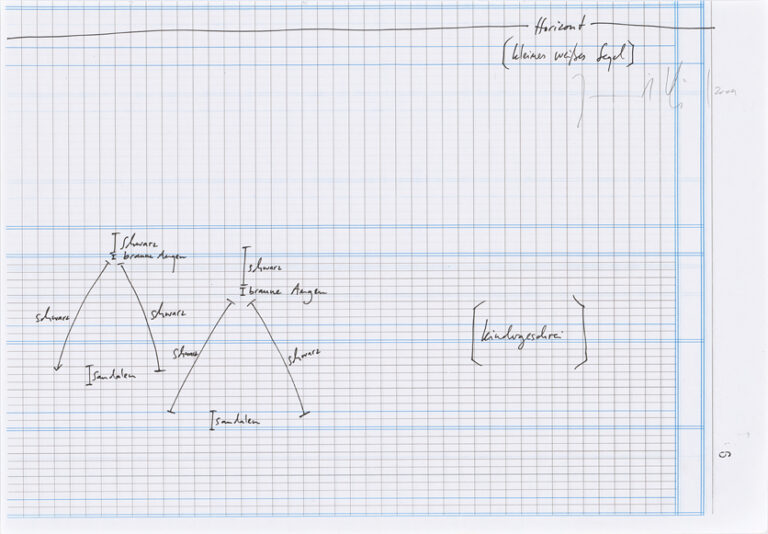 Horizont
(kleines weißes Segel)
2009
schwarz
braune Augen
schwarz
braune Augen
schwarz
schwarz
schwarz
schwarz
Sandalen
Sandalen
[Kindergeschrei]